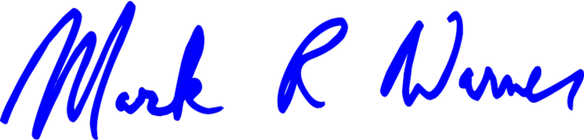 Mark R Warner